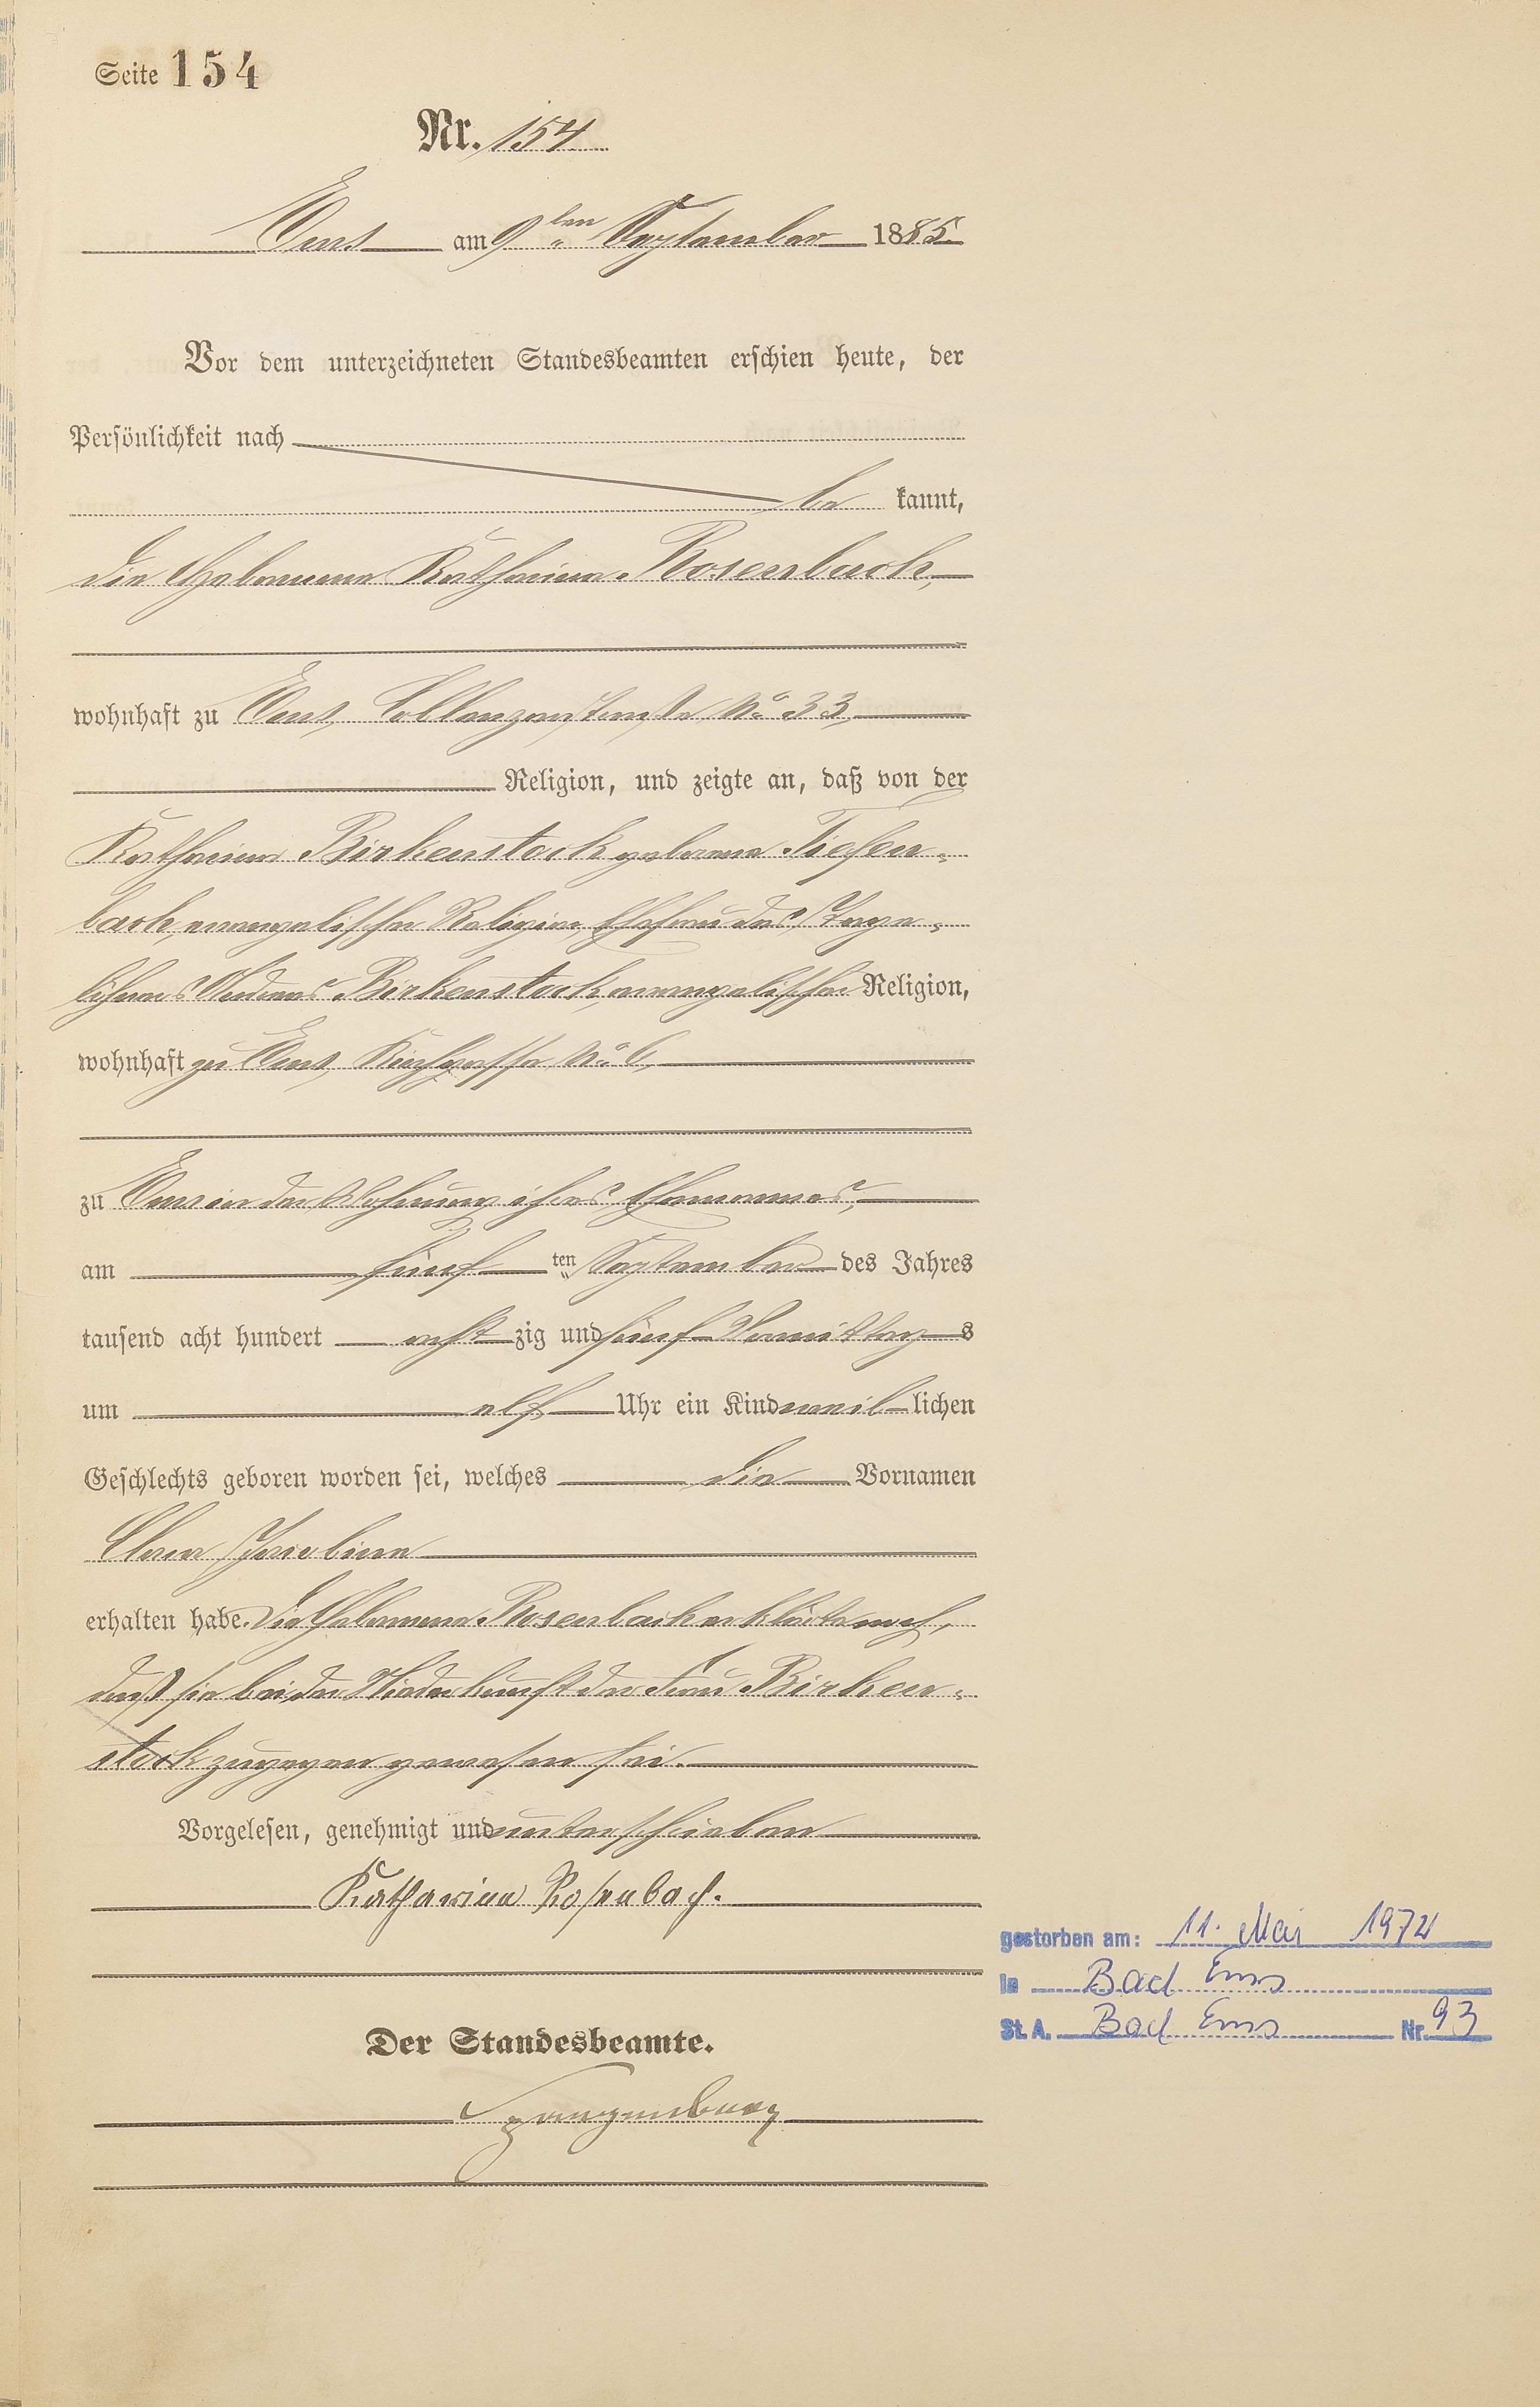 Seite 154
Nr. 154
Ems am 9ten September 1885.
Vor dem unterzeichneten Standesbeamten erschien heute, der
Persönlichkeit nach
be kannt,
die Hebamme Katharina Rosenbach,
wohnhaft zu Ems, Coblenzerstraße No 33,
Religion, und zeigte an, daß von der
Katharina Birkenstock geborene Tiefen-
bach, evangelischer Religion, Ehefrau des Tage-
löhners Andreas Birkenstock, evangelischer Religion,
wohnhaft zu Ems, Kirchgasse No 6,
zu Ems in der Wohnung ihres Ehemannes,
am fünf ten September des Jahres
tausend acht hundert acht zig und fünf Vormittag s
um elf Uhr ein Kind weib lichen
Geschlechts geboren worden sei, welches die Vornamen
Clara
erhalten habe. Die Hebamme Rosenbach erklärte noch,
daß sie bei der Niederkunft der Frau Birken-
stock zugegen gewesen sei.
Vorgelesen, genehmigt und unterschrieben
Katharina Rosenbach.
Der Standesbeamte.
Spangenberg
gestorben am: 11. Mai 1972
in Bad Ems
St. A. Bad Ems Nr. 93